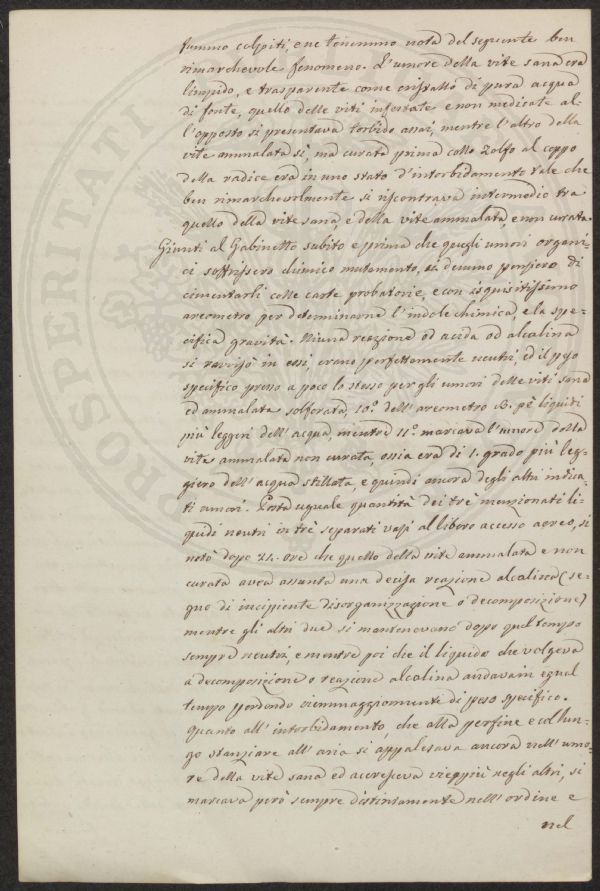 fummo colpiti, e ne tenemmo nota del seguente ben
rimarchevole fenomeno. L'umore della vite sana era
limpido, e trasparente come cristallo di pura acqua
di fonte, quello delle viti infestate e non medicate al-
l'opposto si presentava torbido assai, mentre l'altro della
vite ammalata sì, ma curata prima collo zolfo al ceppo
della radice era in uno stato d'intorbidamento tale che
ben rimarchevolmente si riscontrava intermedio tra
quello della vite sana, e della vite ammalata, e non curata.
Giunti al Gabinetto subito e prima che quegli umori organi-
ci soffrissero chimico mutamento, si demmo pensiero di
cimentarli colle carte probatorie, e con isquisitissimo
areometro per determinarne l'indole chimica, e la spe-
cifica gravità. Niuna reazione od acida od alcalina
si ravvisò in essi, erano perfettamente neutri, ed il peso
specifico presso a poco lo stesso per gli umori delle viti sana
ed ammalata solforata, 10.° dell'areometro B. pe' liquidi
più leggeri dell'acqua, mentre 11.° marcava l'umore della
vite ammalata non curata, ossia era di 1. grado più leg-
giero dell'acqua stillata, e quindi ancora degli altri indica-
ti umori. Posta uguale quantità dei trè menzionati li-
quidi neutri in trè separati vasi al libero accesso aereo, si
notò dopo 24. ore che quello della vite ammalata e non
curata avea assunta una decisa reazione alcalina (se-
gno di incipiente disorganizzazione o decomposizione)
mentre gli altri due si mantenevano dopo quel tempo
sempre neutri, e mentre poi che il liquido che volgeva
a decomposizione o reazione alcalina andava in egual
tempo perdendo viemmaggiormente di peso specifico.
Quanto all'intorbidamento, che alla perfine e col lun-
go stanziare all'aria si appalesava ancora nell'umo-
re della vite sana ed accresceva vieppiù negli altri, si
marcava però sempre distintamente nell'ordine e
nel
PROSPERITATI